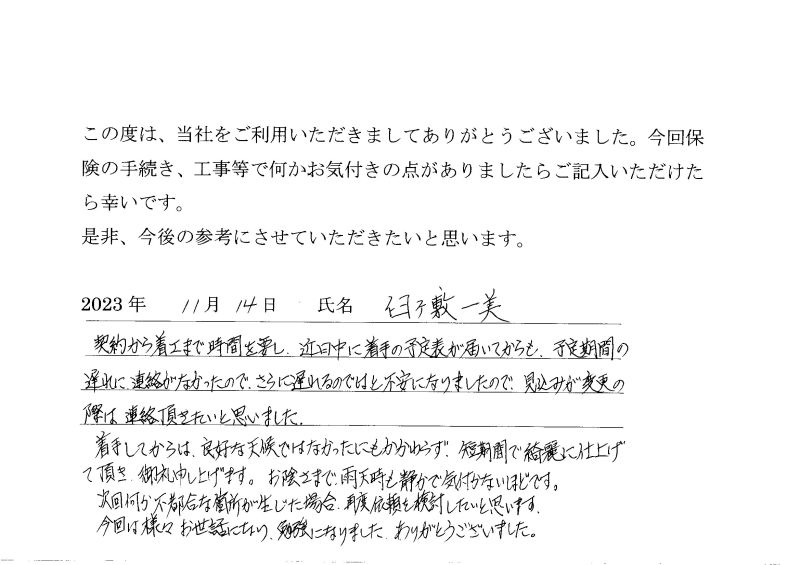 この度は、当社をご利用いただきましてありがとうございました。今回保
険の手続き、工事等で何かお気付きの点がありましたらご記入いただけた
ら幸いです。
是非、今後の参考にさせていただきたいと思います。
2023年 11月 14日 氏名 敷一美
契約から着工まで時間を要し、近日中に着手の予定表が届いてからも、予定期間の
遅れに連絡がなかったので、さらに遅れるのではと不安になりましたので、見込みが変更の
際は連絡頂きたいと思いました。
着手してからは、良好な天候ではなかったにもかかわらず、短期間で綺麗に仕上げ
て頂き、御礼申し上げます。お陰さまで、雨天時も静かで気付かないほどです。
次回何か不都合な箇所が生じた場合、再度依頼を検討したいと思います。
今回は様々お世話になり、勉強になりました。ありがとうございました。